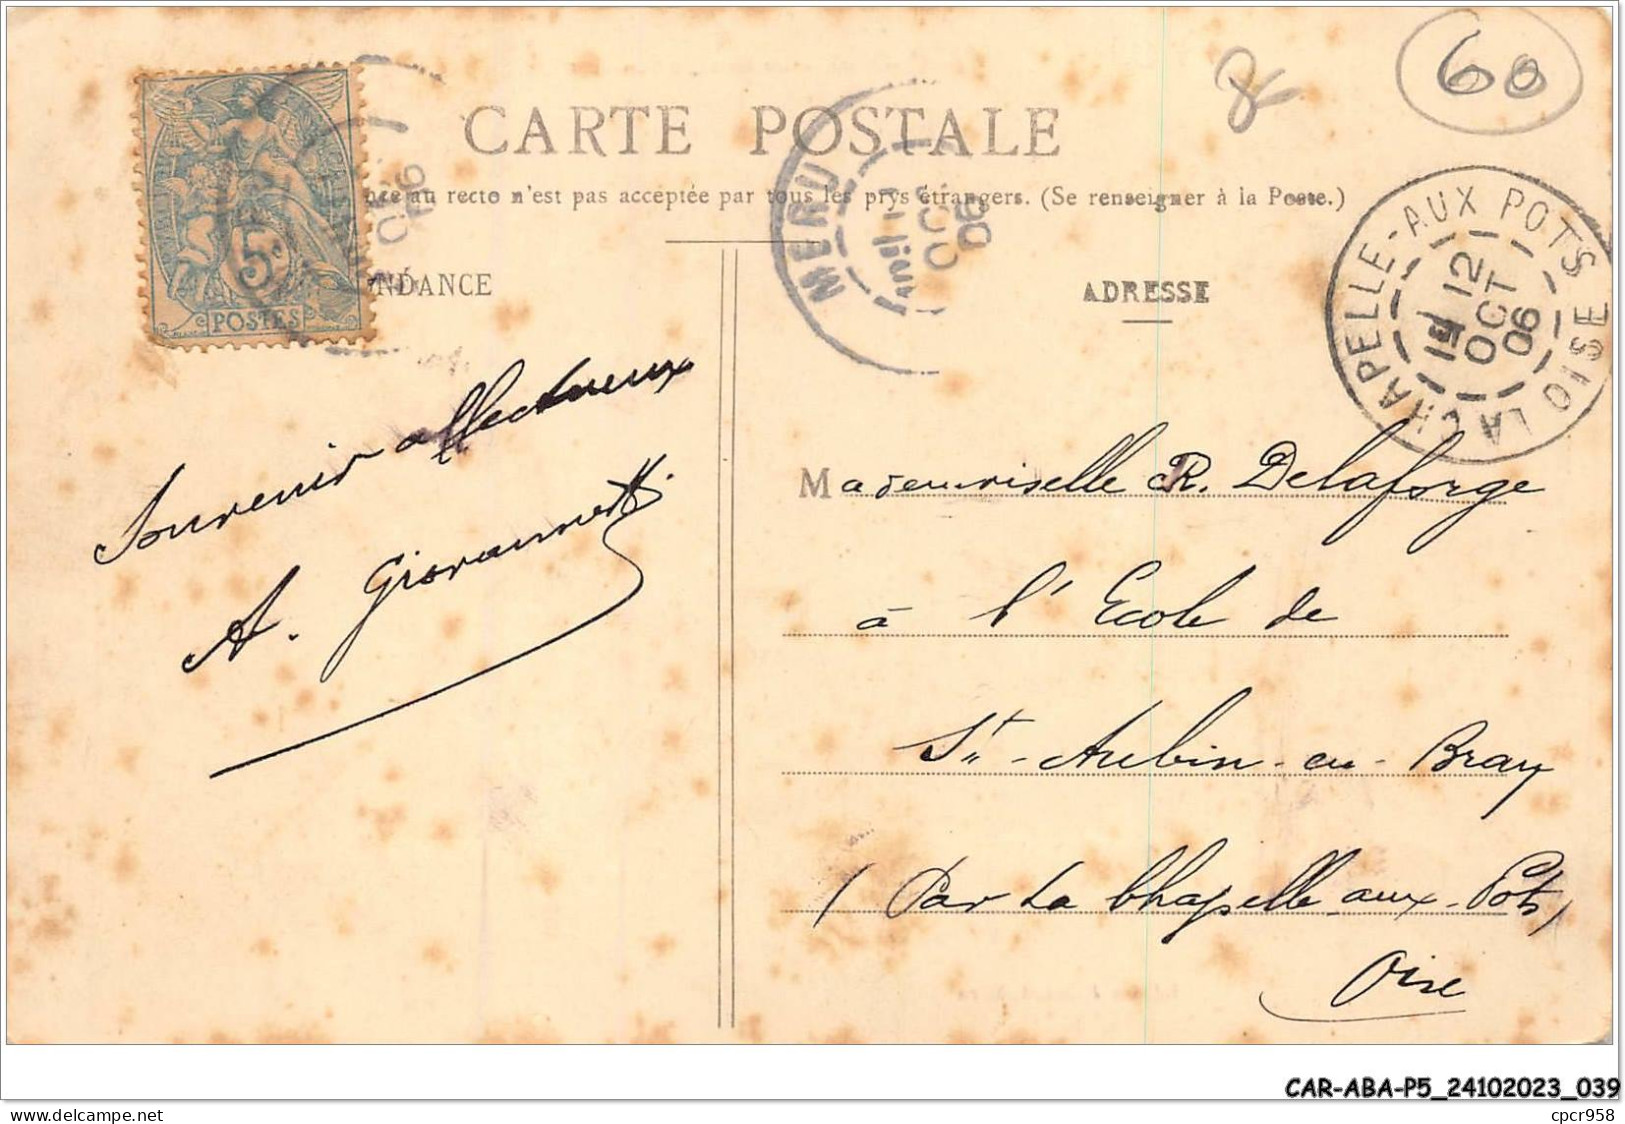 60
CARTE POSTALE
nce au recto n'est pas acceptée par tous les pays étrangers. (Se renseigner à la Poste.)
5c
POSTES
OCT
06
MERU
OCT
06
LA CHAPELLE-AUX POTS OISE
12
OCT
06
NDANCE
ADRESSE
Souvenir affectueux
A. Giovannetti
Mademoiselle R. Delaforge
à l'Ecole de
St-Aubin-en-Bray
(Par La Chapelle-aux-Pots)
Oise
CAR-ABA-P5_24102023_039
cpcr958